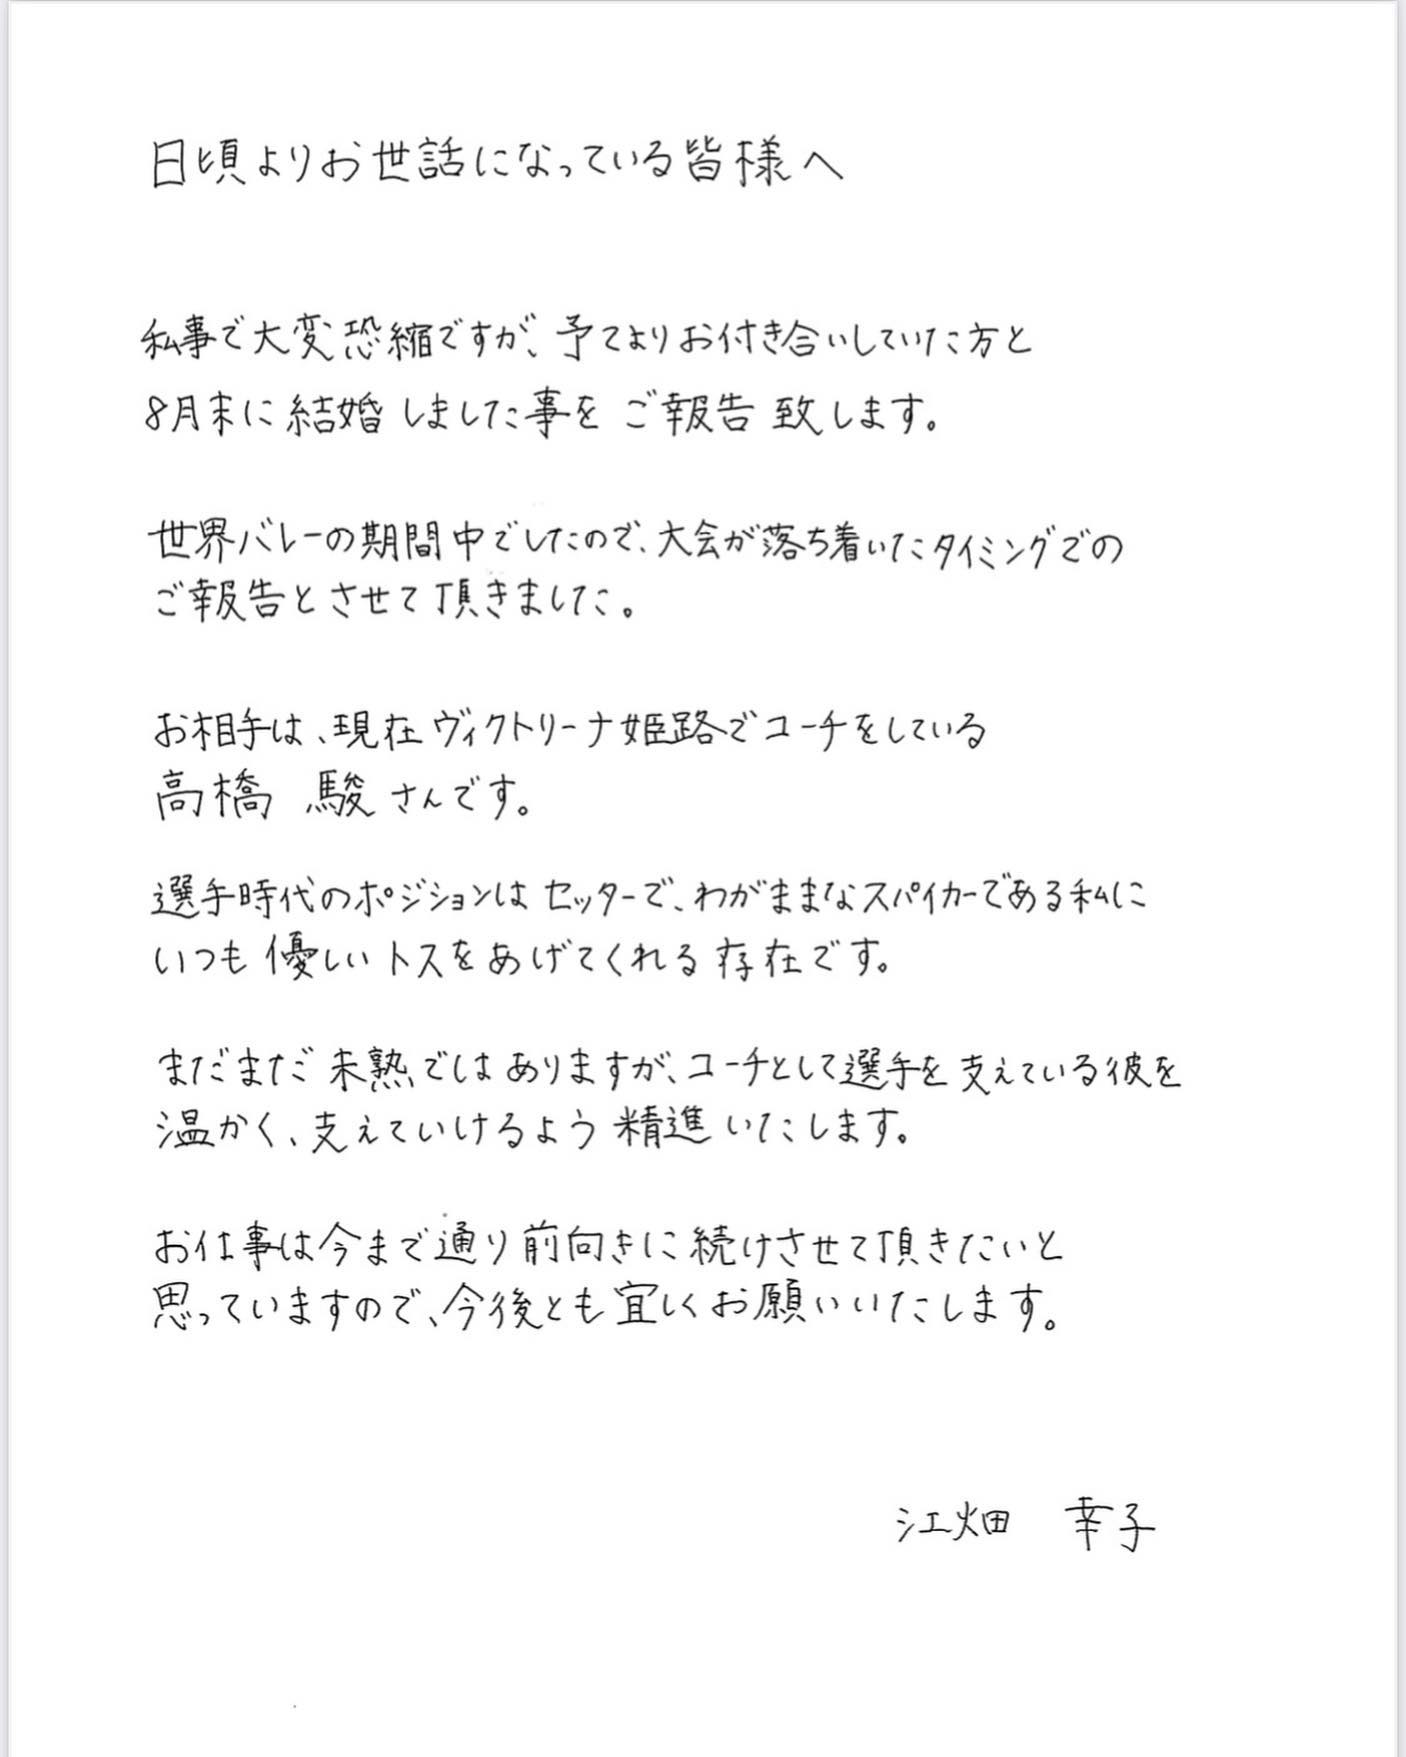 日頃よりお世話になっている皆様へ
私事で大変恐縮ですが、予てよりお付き合いしていた方と
8月末に結婚しました事をご報告致します。
世界バレーの期間中でしたので、大会が落ち着いたタイミングでの
ご報告とさせて頂きました。
お相手は、現在ヴィクトリーナ姫路でコーチをしている
高橋 駿さんです。
選手時代のポジションはセッターで、わがままなスパイカーである私に
いつも優しいトスをあげてくれる存在です。
まだまだ未熟ではありますが、コーチとして選手を支えている彼を
温かく、支えていけるよう精進いたします。
お仕事は今まで通り前向きに続けさせて頂きたいと
思っていますので、今後とも宜しくお願いいたします。
江畑 幸子